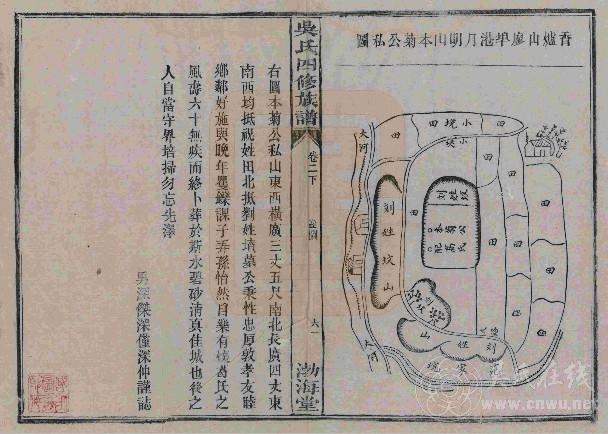 香爐山廖埠港月明山本菊公私圖
大河
田
田
小塊
田
田
小堘
田
田
田
田
田
刘姓坟山
刘姓坟
本菊公
配葛氏
刘姓坟山
大河
吳氏四修族譜
卷二下
墳圖
六
渤海堂
右圖本菊公私山東西橫廣三丈五尺南北長廣四丈東
南西均抵祝姓田北抵劉姓墳墓公秉性忠厚敦孝友睦
鄉鄰好施與晚年矍鑠課子弄孫怡然自樂有燒葛氏之
風壽六十無疾而終卜葬於斯水碧砂清真佳城也後之
人自當守界培掃勿忘先澤
男深傑深僅深仲謹誌
吴氏在线
www.cnwu.net